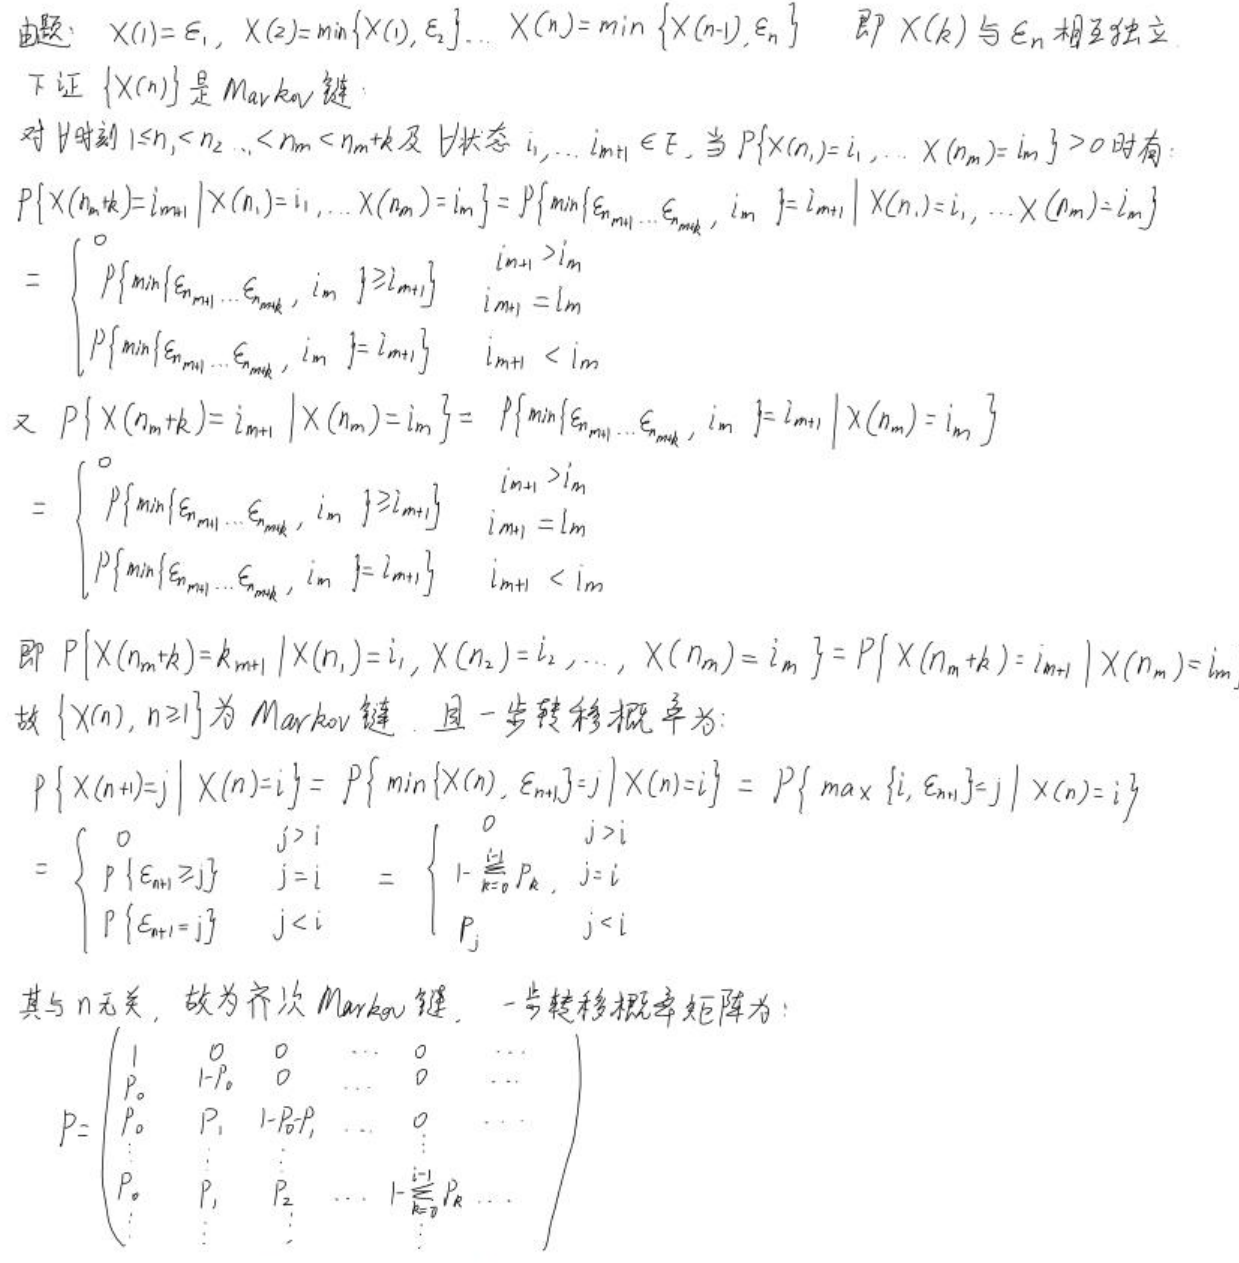 由题: X(1)=ε₁, X(2)=min{X(1),ε₂}... X(n)=min{X(n-1),εₙ} 即 X(k)与εₙ相互独立.
下证 {X(n)}是Markov链:
对∀时刻 1≤n₁<n₂...<nₘ<nₘ+k及∀状态 i₁,... iₘ₊₁∈E, 当P{X(n₁)=i₁,... X(nₘ)=iₘ}>0时有:
P{X(nₘ+k)=iₘ₊₁|X(n₁)=i₁,... X(nₘ)=iₘ}=P{min{ε_{n_{m+1}}...ε_{n_{m+k}}, iₘ}=iₘ₊₁|X(n₁)=i₁,...X(nₘ)=iₘ}
= { 0 iₘ₊₁>iₘ
P{min{ε_{n_{m+1}}...ε_{n_{m+k}}, iₘ}≥iₘ₊₁} iₘ₊₁=iₘ
P{min{ε_{n_{m+1}}...ε_{n_{m+k}}, iₘ}=iₘ₊₁} iₘ₊₁<iₘ
又 P{X(nₘ+k)=iₘ₊₁|X(nₘ)=iₘ}= P{min{ε_{n_{m+1}}...ε_{n_{m+k}}, iₘ}=iₘ₊₁|X(nₘ)=iₘ}
= { 0 iₘ₊₁>iₘ
P{min{ε_{n_{m+1}}...ε_{n_{m+k}}, iₘ}≥iₘ₊₁} iₘ₊₁=iₘ
P{min{ε_{n_{m+1}}...ε_{n_{m+k}}, iₘ}=iₘ₊₁} iₘ₊₁<iₘ
即 P{X(nₘ+k)=kₘ₊₁|X(n₁)=i₁, X(n₂)=i₂,..., X(nₘ)=iₘ}=P{X(nₘ+k)=iₘ₊₁|X(nₘ)=iₘ}
故{X(n), n≥1}为Markov链. 且一步转移概率为:
P{X(n+1)=j|X(n)=i}=P{min{X(n), εₙ₊₁}=j|X(n)=i}=P{max{i, εₙ₊₁}=j|X(n)=i}
= { 0 j>i = { 0 j>i
P{εₙ₊₁≥j} j=i 1-∑_{k=0}^{i-1}Pₖ, j=i
P{εₙ₊₁=j} j<i Pⱼ j<i
其与n无关, 故为齐次Markov链, 一步转移概率矩阵为:
1 0 0 ... 0 ...
P₀ 1-P₀ 0 ... 0 ...
P= P₀ P₁ 1-P₀-P₁ ... 0 ...
⋮ ⋮ ⋮ ⋮
P₀ P₁ P₂ ... 1-∑_{k=0}^{i-1}Pₖ ...
⋮ ⋮ ⋮ ⋮